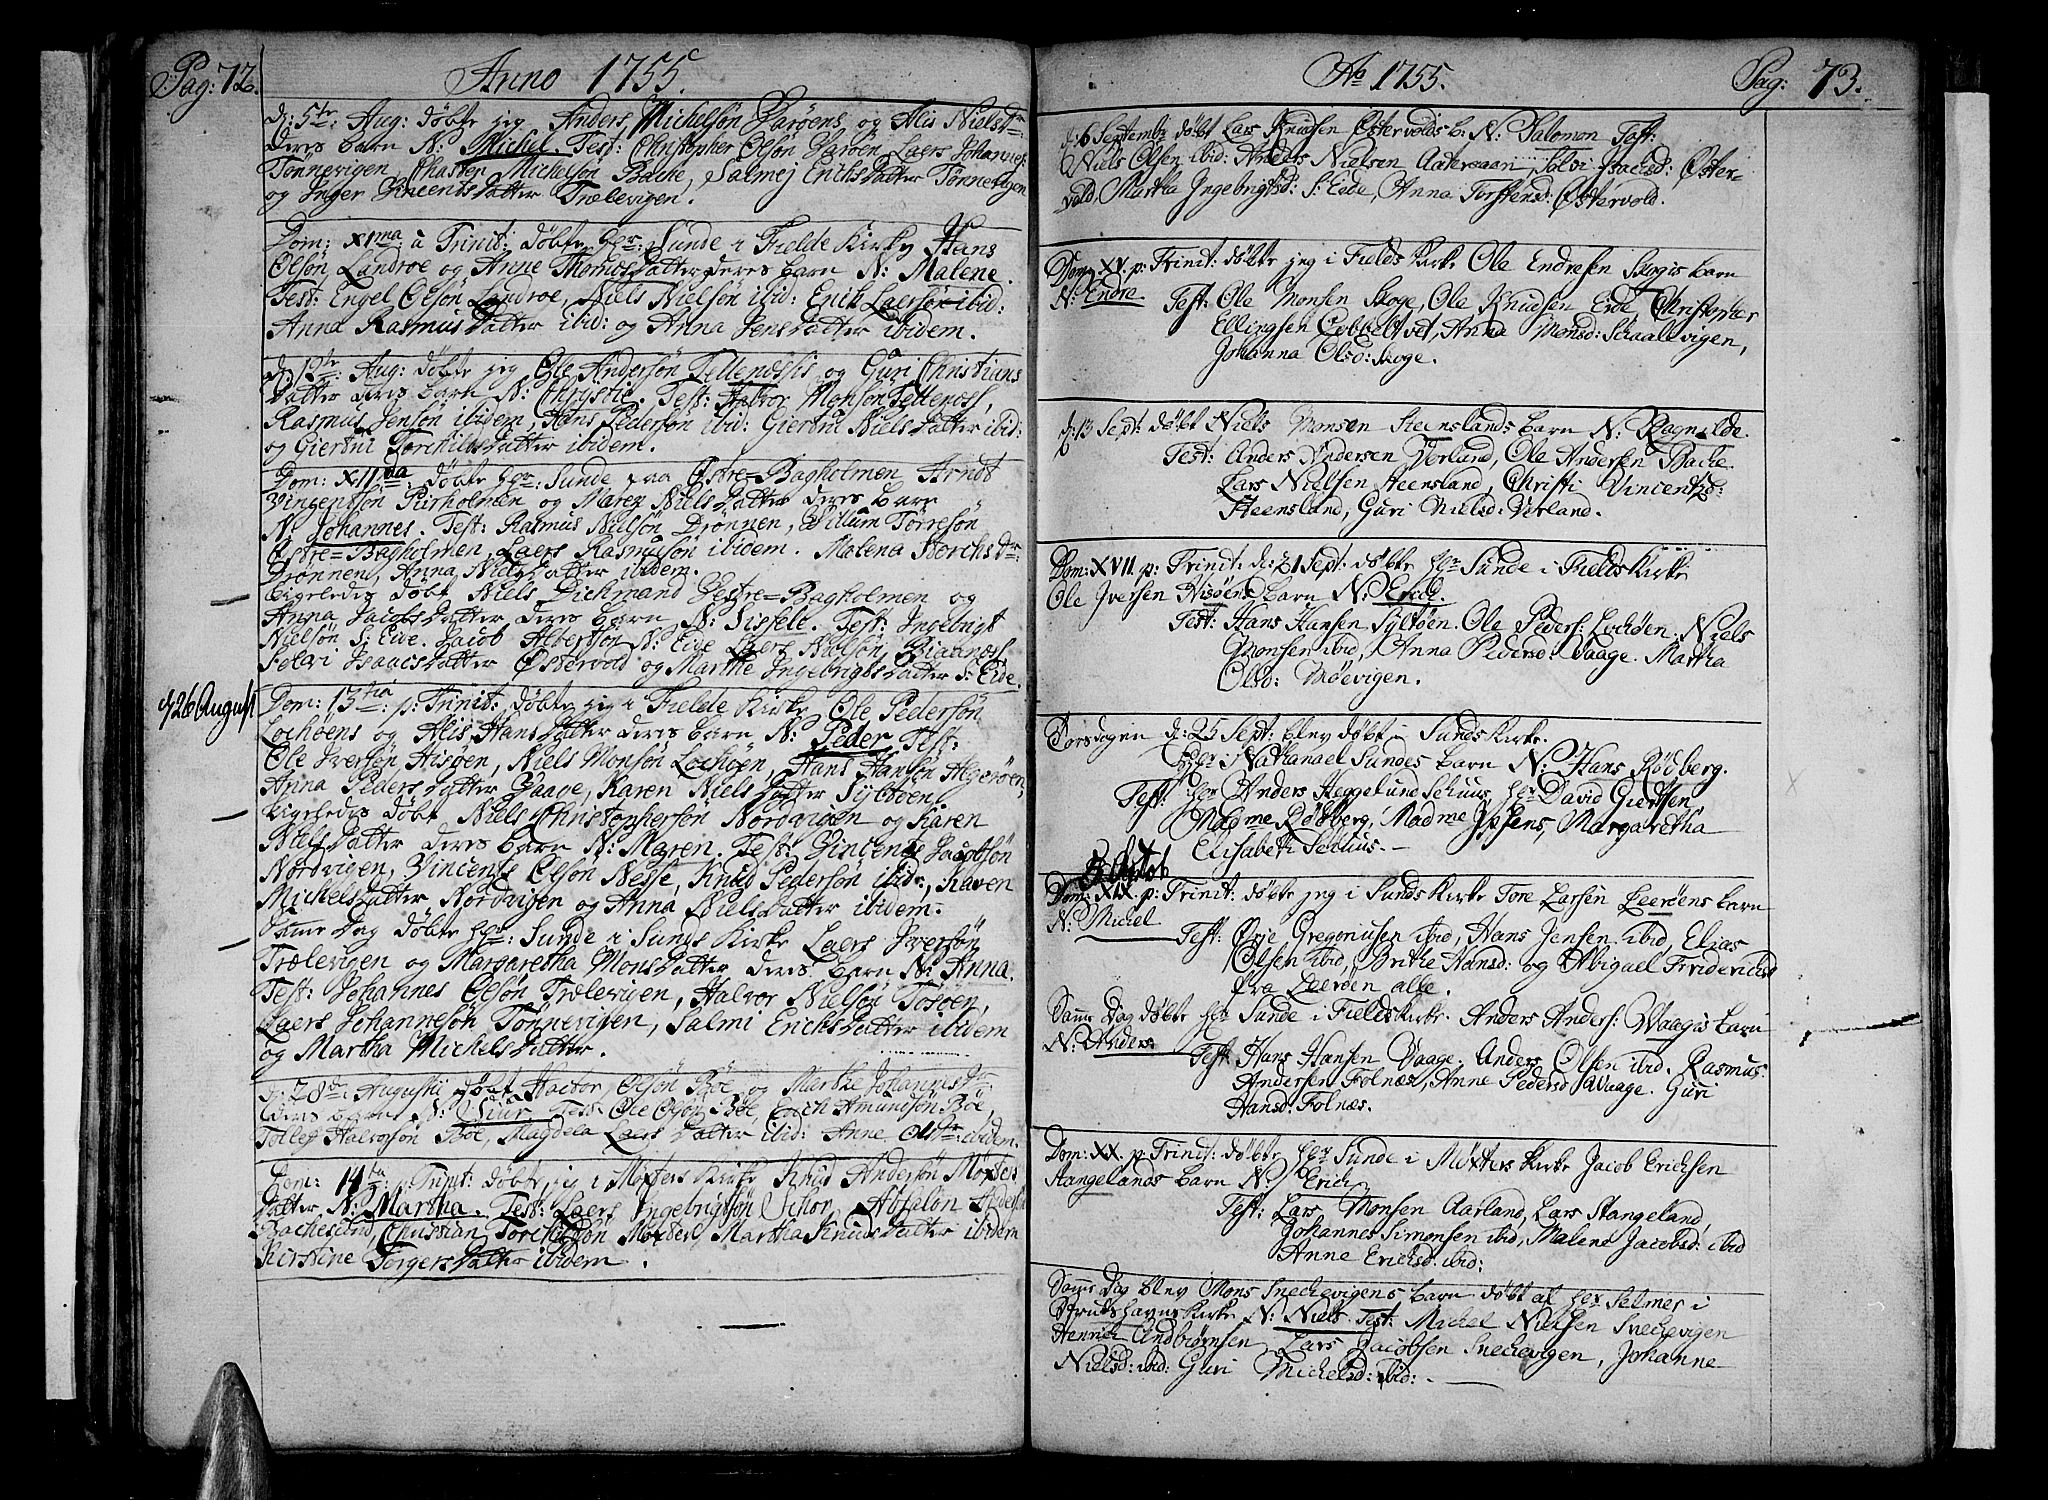 Pag: 72.
Anno 1755.
d: 5te Aug: døbte jeg Anders Michelsøn Barøens og Alis Nielsdr
deris barn N: Michel. Test: Christopher Olsøn Barøen, Laers Johannes:
Tønnevigen Michelsøn Backe, Salmej Erichsdatter Tønnevigen
og Inger Vincentsdatter Trælevigen.
Dom: XIma: a Trinit: døbte Hr: Sunde i Fielde Kirke Hans
Olsøn Landroe og Anne Thomosdatter deres barn N: Malene
Test: Engel Olsøn Landroe, Niels Nielsøn ibid: Erich Laersøn ibid:
Anna Rasmusdatter ibid: og Anna Jensdatter ibidem.
d: 13te Aug: døbte jeg Ole Andersøn Tellenæssis og Guri Christians
datter deris barn N: Chrystie. Test: Halvor Monsøn Tellenæs,
Rasmus Jensøn ibidem, Hans Pedersøn ibid: Giertru Nielsdatter ibid:
og Giertru Torchildsdatter ibidem.
Dom: XIIma: døbte Hr: Sunde paa Østre=Bagholmen Arndt
Vingentsøn Pirholmen og Maren Nielsdatter deres barn
N: Johannes. Test: Rasmus Nielsøn Drønnen, Willum Torresøn
Østre=Bagholmen, Laers Rasmusøn ibidem. Malena Storchsdr:
Drønnen, Anna Nielsdatter ibidem.
Ligeledes døbt Niels Dichmand Vestre=Bagholmen og
Anna Jacobsdatter deres barn N: Sissele. Test: Ingebrigt
Nielsøn S: Eide. Jacob Albertsøn N: Eide Laers Nielsøn,
Selvi Isaacsdatter Østervold og Marthe Ingebrigtsdatter S: Eide.
d 26 August
Dom: 13tia: p: Trinit: døbte jeg i Fielde Kirke Ole Pedersøn
Lochøens og Alis Hansdatter deres barn N: Peder, Test:
Ole Iversøn Hisøen, Niels Monsøn Lochøen, Hans Hansøn Algerøen,
Anna Pedersdatter Vaage, Karen Nielsdatter Syltøen.
Ligeledes døbt Niels Christophersøn Nordvigen og Karen
Nielsdatter deres barn N: Maren. Test: Vincents Jacobsøn
Nordvigen, Vincents Olsøn Nesse, Knud Pedersøn ibid:, Karen
Michelsdatter Nordvigen og Anna Nielsdatter ibidem.
Samme Dag døbte Hr: Sunde i Sunds Kirke Laers Iversøn
Trælevigen og Margaretha Monsdatter deres barn N: Anna.
Test: Johannes Olsøn Trælevigen, Halvor Nielsøn Tosøen,
Laers Johannesøn Tønnevigen, Salmi Erichsdatter ibidem
og Martha Michelsdatter.
d: 28de Augustii døbt Hactor Olsøn Bøe og Marthe Johannisdr
deres barn N: Siur Test: Ole Olsøn Bøe, Erich Amundsøn Bøe,
Tollef Halvorsøn Bøe, Magdela Laersdatter ibid: Anne Olsdr: ibidem.
Dom: 14ta: p: Trinit: døbte jeg i Møxters Kirke Knud Andersøn Møxters
datter N: Martha. Test: Laers Ingebrigtsøn Schor, Absalon Andersøn
Bachesund, Christian Torchildsøn Møxter, Martha Knudsdatter ibidem
Kirstine Torgersdatter ibidem.
Ao 1755.
Pag: 73.
d: 6 Septembr døbt Lars Knudsen Østervolds b: N: Salomon Test:
Niels Olsen ibid: Anders Nielsen Aatersaan Salvi Isachsd: Øster-
vold, Martha Ingebrigtsd: S: Eide, Anna Torstensd: Østervold.
Dom: XV. p: Trinit: døbte jeg i Fields Kirke Ole Endresen Skogis barn
N: Endre. Test: Ole Monsen Skoge, Ole Knudsen Eide, Christopher
Ellingsen Cobbeltvet, Anna Monsd: Schaallvigen,
Johanna Olsd: Skoge.
d: 13 Sept: døbt Niels Monsen Steenslands barn N: Ragnilde.
Test: Anders Andersen Vorland, Ole Andersen Backe
Lars Nielsen Steensland, Christi Vincentsd:
Steensland, Guri Nielsd: Vorland.
Dom: XVII. p: Trinit: d: 21 Sept: døbte Hr Sunde i Fields Kirke
Ole Iversen Hisøens barn N: Erich.
Test: Hans Hansen Syltøen. Ole Peders: Lochøen. Niels
Monsen ibid, Anna Pedersd: Vaage. Martha
Olsd: Møevigen.
Torsdagen d: 25 Sept: blev døbt i Sunds Kirke.
Hr Nathanael Sundes barn N: Hans Rødberg.
Test: Hr Anders Heggelund Schiuus, Hr David Giertsen
Madme Rødberg, Madme Ipsens, Margaretha
Elisabeth Schuus.-
5 Octob
Dom: XIX. p: Trinit: døbte jeg i Sunds Kirke Tore Larsen Leerøens barn
N: Michel Test: Ørje Gregoriusen ibid, Hans Jensen ibid, Elias
Olsen ibid, Brithe Hansd: og Abigael Friderichsd
fra Leerøen alle.
Samme Dag døbte Hr Sunde i Fields Kirke. Anders Anders: Waagis barn
N: Anders. Test: Hans Hansen Vaage. Anders Olsen ibid. Rasmus
Andersen Folnæs, Anne Pedersd Waage. Guri
Hansd: Folnæs.
Dom: XX. p: Trinit: døbte Hr Sunde i Møxters Kirke Jacob Erichsen
Stangelands barn N: Erich
Test: Lars Monsen Aarland, Lars Stangeland,
Johannes Simonsen ibid, Malene Jacobsd: ibid
Anne Erichsd: ibid:
Samme Dag blev Mons Snechevigens barn døbt af Hr Selmer i
Strudshavns Kirke N: Niels. Test: Michel Nielsen Snechevigen
Henrich Andbiørnsen Lars Jacobsen Snechevigen, Johanne
Nielsd: ibid: Guri Michelsd: ibid: